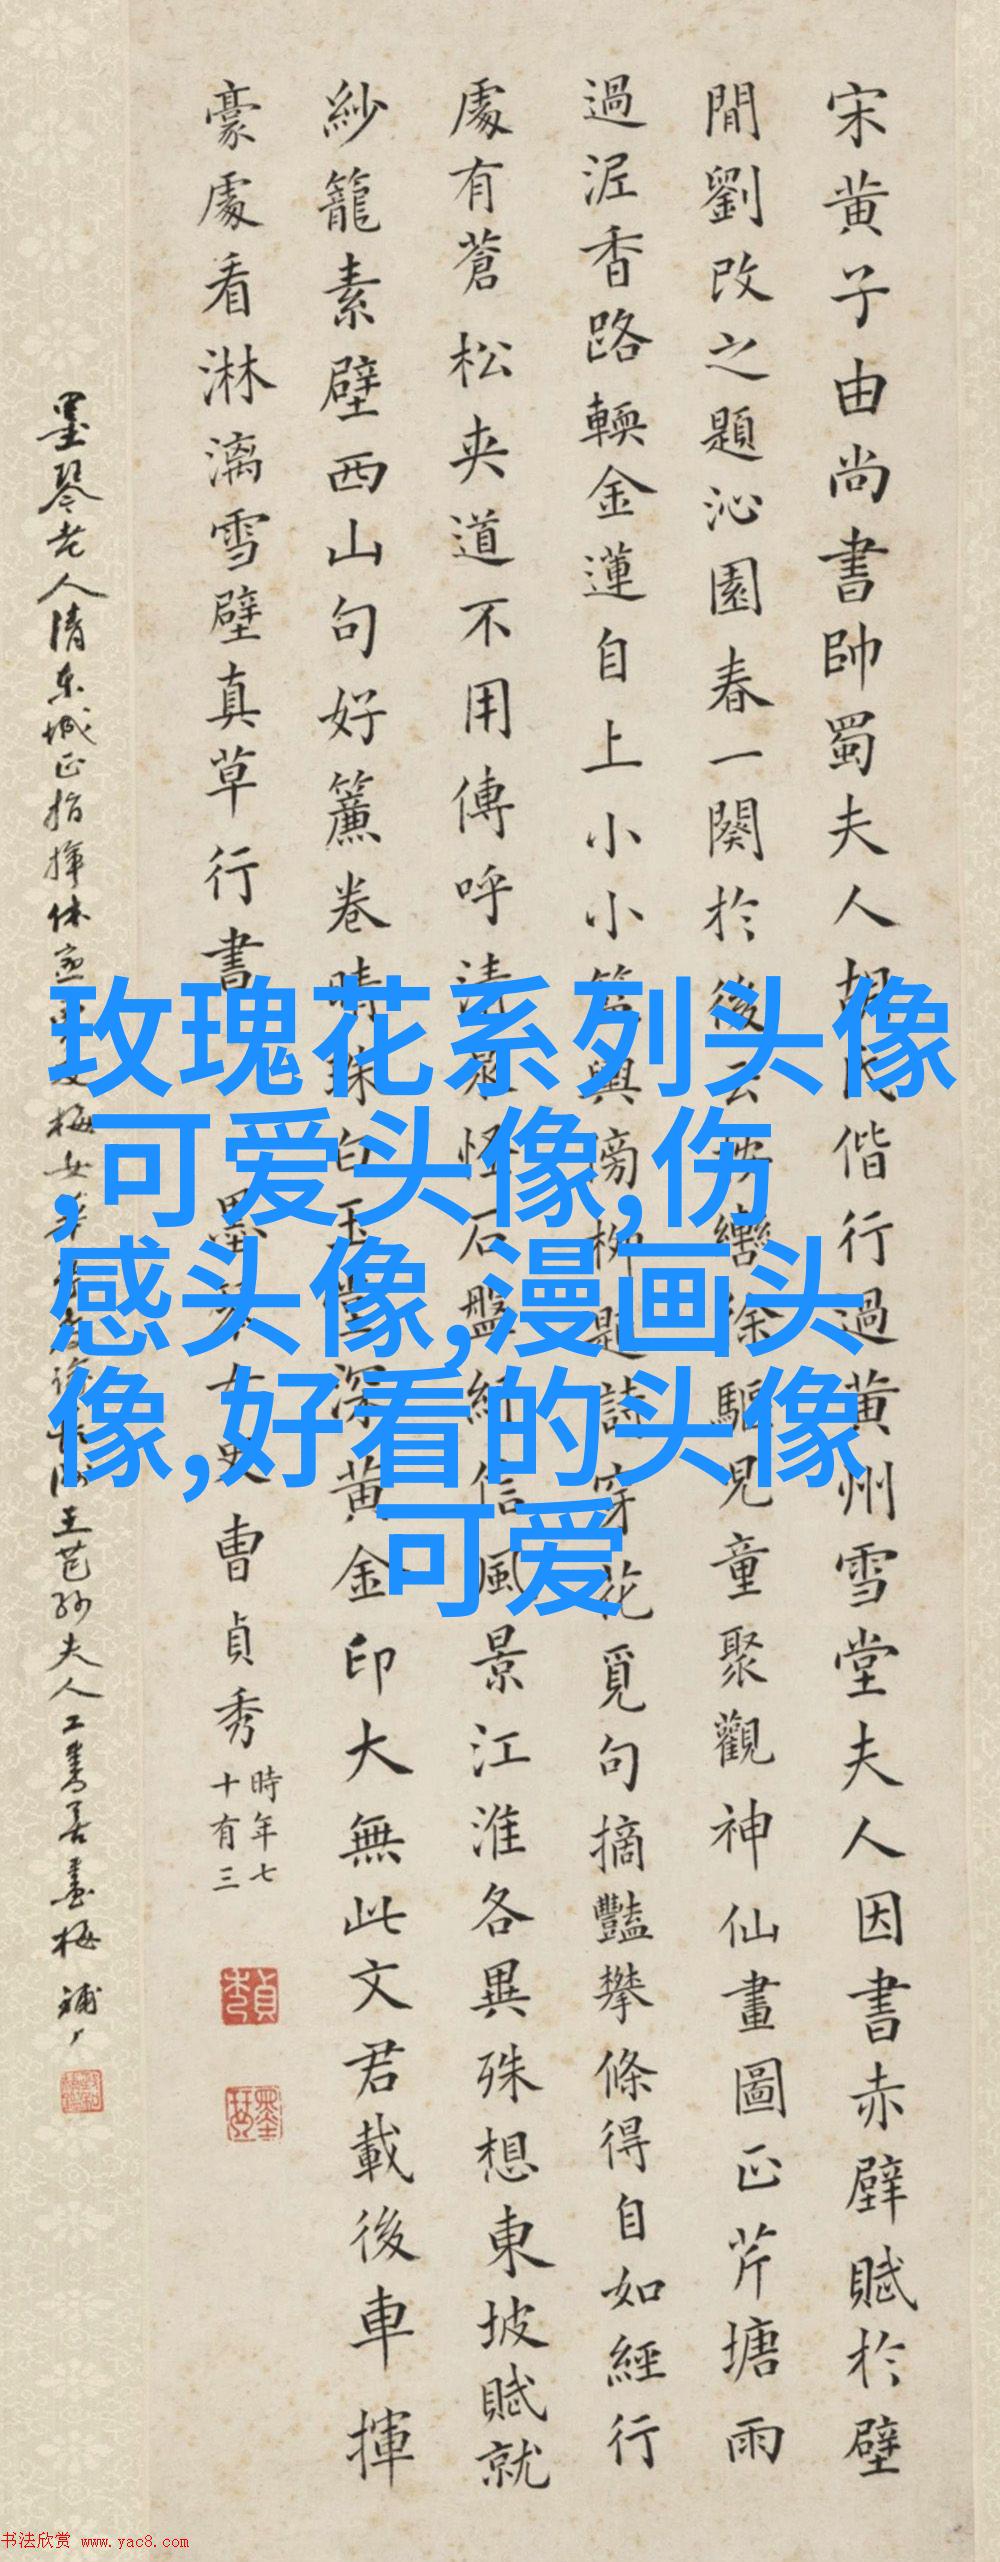 宋黄子由尚書帥蜀夫人胡氏偕行過黄州雪堂夫人因書赤壁賦於壁
間劉改之題沁園春一闋於後云按轡徐驅見童聚觀神仙畫圖正芹塘雨
過泥香路輭金蓮自上小小籃輿傍柳題詩穿花覓句摘豔攀條得自如經行
處有蒼松夾道不用傳呼清泉怪石盤紆信風景江淮各異殊想東坡賦就
紗籠素壁西山句好簾卷晴珠白玉堂深黄金印大無此文君載後車揮
豪處看淋漓雪壁真草行書
墨琴女史曹貞秀時年七
十有三
墨琴老人清東城正指揮
王芑孫夫人工書善畫梅
玫瑰花系列头像
,可爱头像,伤
感头像,漫画头
像,好看的头像
可爱
书法欣赏 www.yac8.com